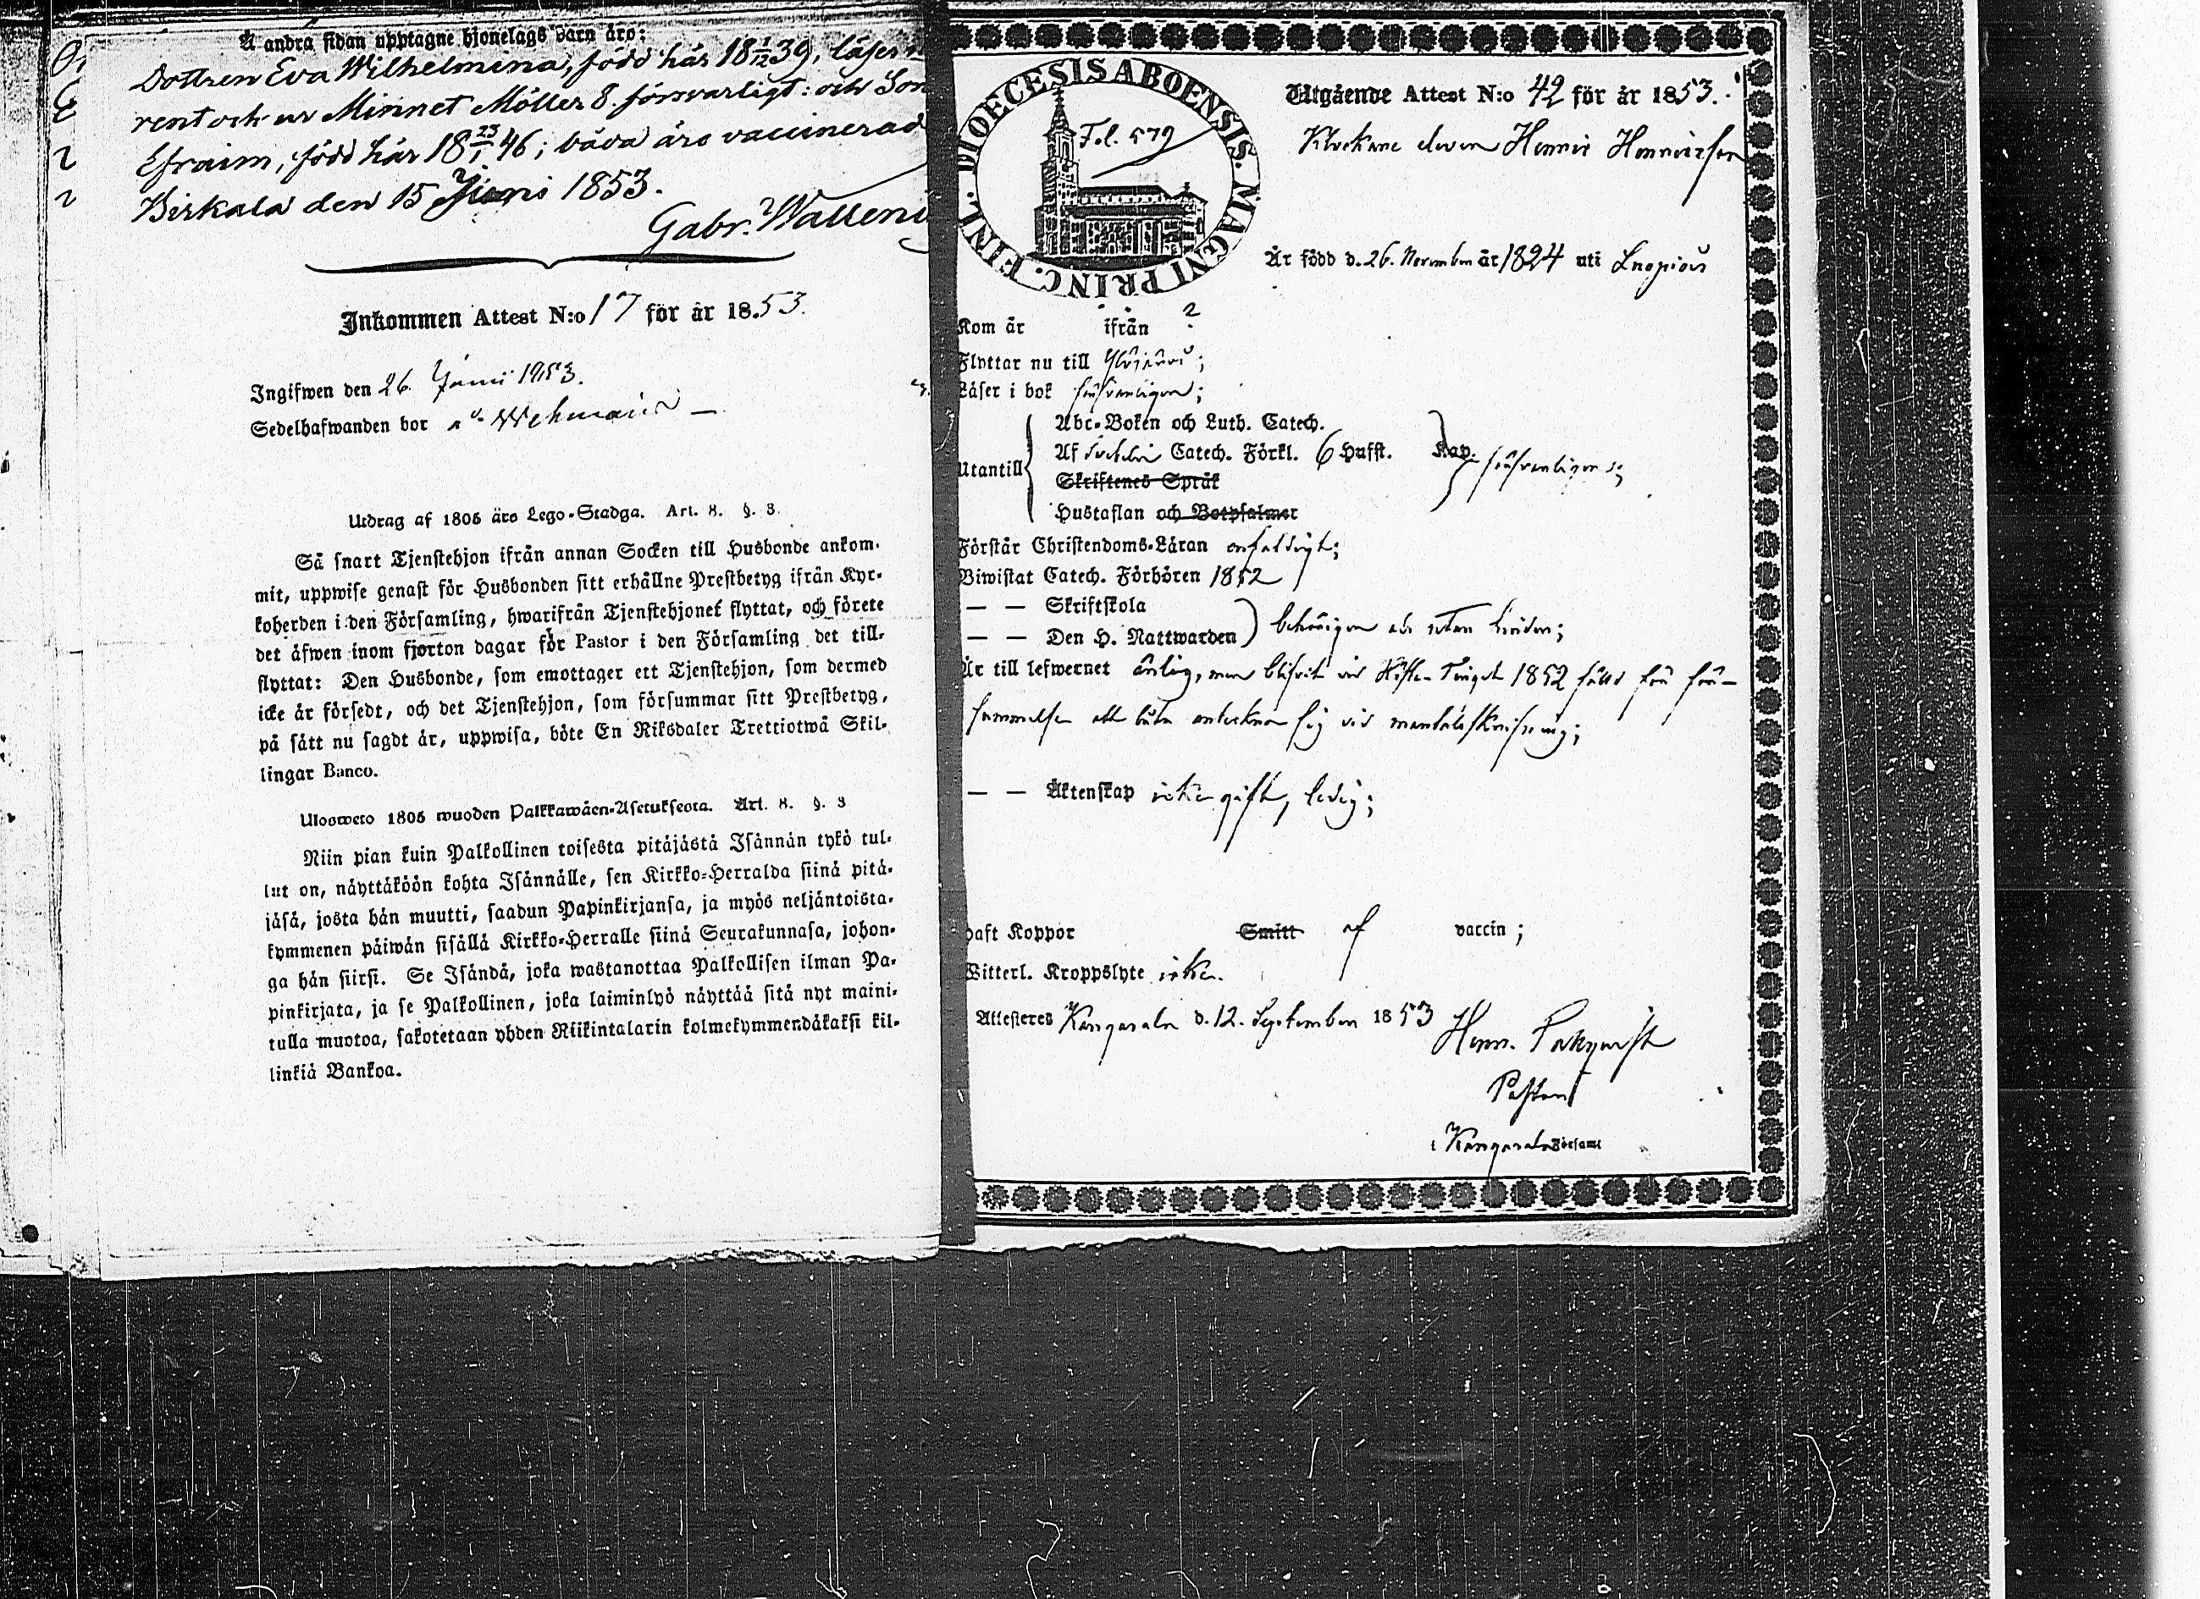 Å andra sidan upptagne hjonelags barn äro:
Dottren Eva Wilhelmina, född här 18 1/12 39, läser
rent och ur Minnet Möller 8. försvarligt: och Son
Efraim, född här 18 23/1 46; båda äro vaccinerad
Birkala den 15 Juni 1853.
Gabr. Walleni
Inkommen Attest N:o 17 för år 1853.
Ingifwen den 26. Juni 1853.
Sedelhafwanden bor
Utdrag af 1805 års Lego-Stadga. Art. 8. §. 3.
Så snart Tjenstehjon ifrån annan Socken till Husbonde ankom-
mit, uppwise genast för Husbonden sitt erhållne Prestbetyg ifrån Kyr-
koherden i den Församling, hwarifrån Tjenstehjonet flyttat, och förete
det äfwen inom fjorton dagar för Pastor i den Församling det till-
flyttat: Den Husbonde, som emottager ett Tjenstehjon, som dermed
icke är försedt, och det Tjenstehjon, som försummar sitt Prestbetyg,
på sätt nu sagdt är, uppwisa, böte En Riksdaler Trettiotwå Skil-
lingar Banco.
Uloosweto 1805 wuoden Palkkawäen-Asetuksesta. Art. 8. §. 3
Niin pian kuin Palkollinen toisesta pitäjästä Isännän tykö tul-
lut on, näyttäköön kohta Isännälle, sen Kirkko-Herralda siinä pitä-
jäsä, josta hän muutti, saadun Papinkirjansa, ja myös neljäntoista-
kymmenen päiwän sisällä Kirkko-Herralle siinä Seurakunnasa, johon-
ga hän siirsi. Se Isändä, joka wastanottaa Palkollisen ilman Pa-
pinkirjata, ja se Palkollinen, joka laiminlyö näyttää sitä nyt maini-
tulla muotoa, sakotetaan yhden Riikintalarin kolmekymmendäkaksi kil-
linkiä Bankoa.
DIOECESIS ABOENSIS. MAGNI PRINC. FINL.
Fol. 579
Utgående Attest N:o 42 för år 1853.
Klockare eleven Henric Henricsson
Är född d. 26. November år 1824 uti
Kom år ifrån ?
Flyttar nu till Ylöjärvi;
Läser i bok försvarligen;
Abc-Boken och Luth. Catech.
Utantill Af Catech. Förkl. 6 Hufst. Kap. försvarligen;
Skriftenes Språk
Hustaflan och Botpsalmer
Förstår Christendoms-Läran enfaldigt;
Biwistat Catech. Förhören 1852
— — Skriftskola
— — Den H. Nattwarden behörigen
Är till lefwernet ärlig, men blifvit vid Höste-Tinget 1852 fälld för för-
summelse att låta anteckna sig vid mantalsskrifning;
— — Äktenskap icke gift, ledig;
Haft Koppor Smitt af vaccin;
Witterl. Kroppslyte icke.
Attesteres Kangasala d. 12. September 1853
Henr.
Pastor
i Kangasala Församl